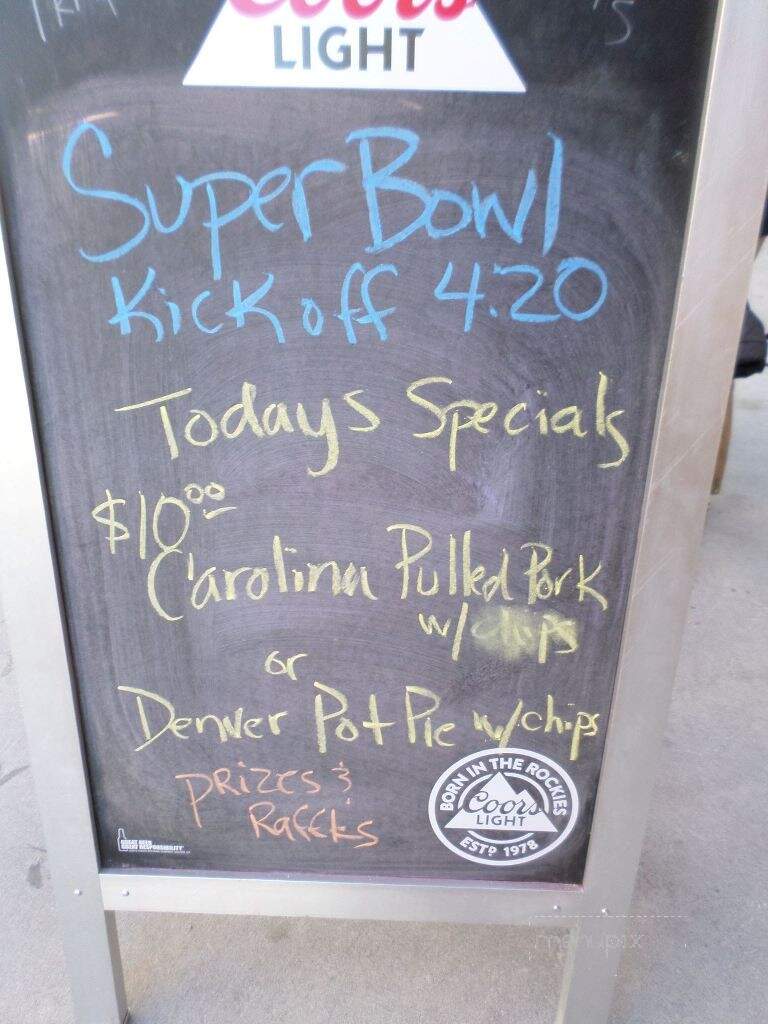 Coors
LIGHT
Super Bowl
Kickoff 4:20
Todays Specials
$10.00
Carolina Pulled Pork
w/chips
or
Denver Pot Pie w/chips
PRIZES &
Raffles
BORN IN THE ROCKIES
Coors
LIGHT
ESTD 1978
GREAT BEER
GREAT RESPONSIBILITY
menupix